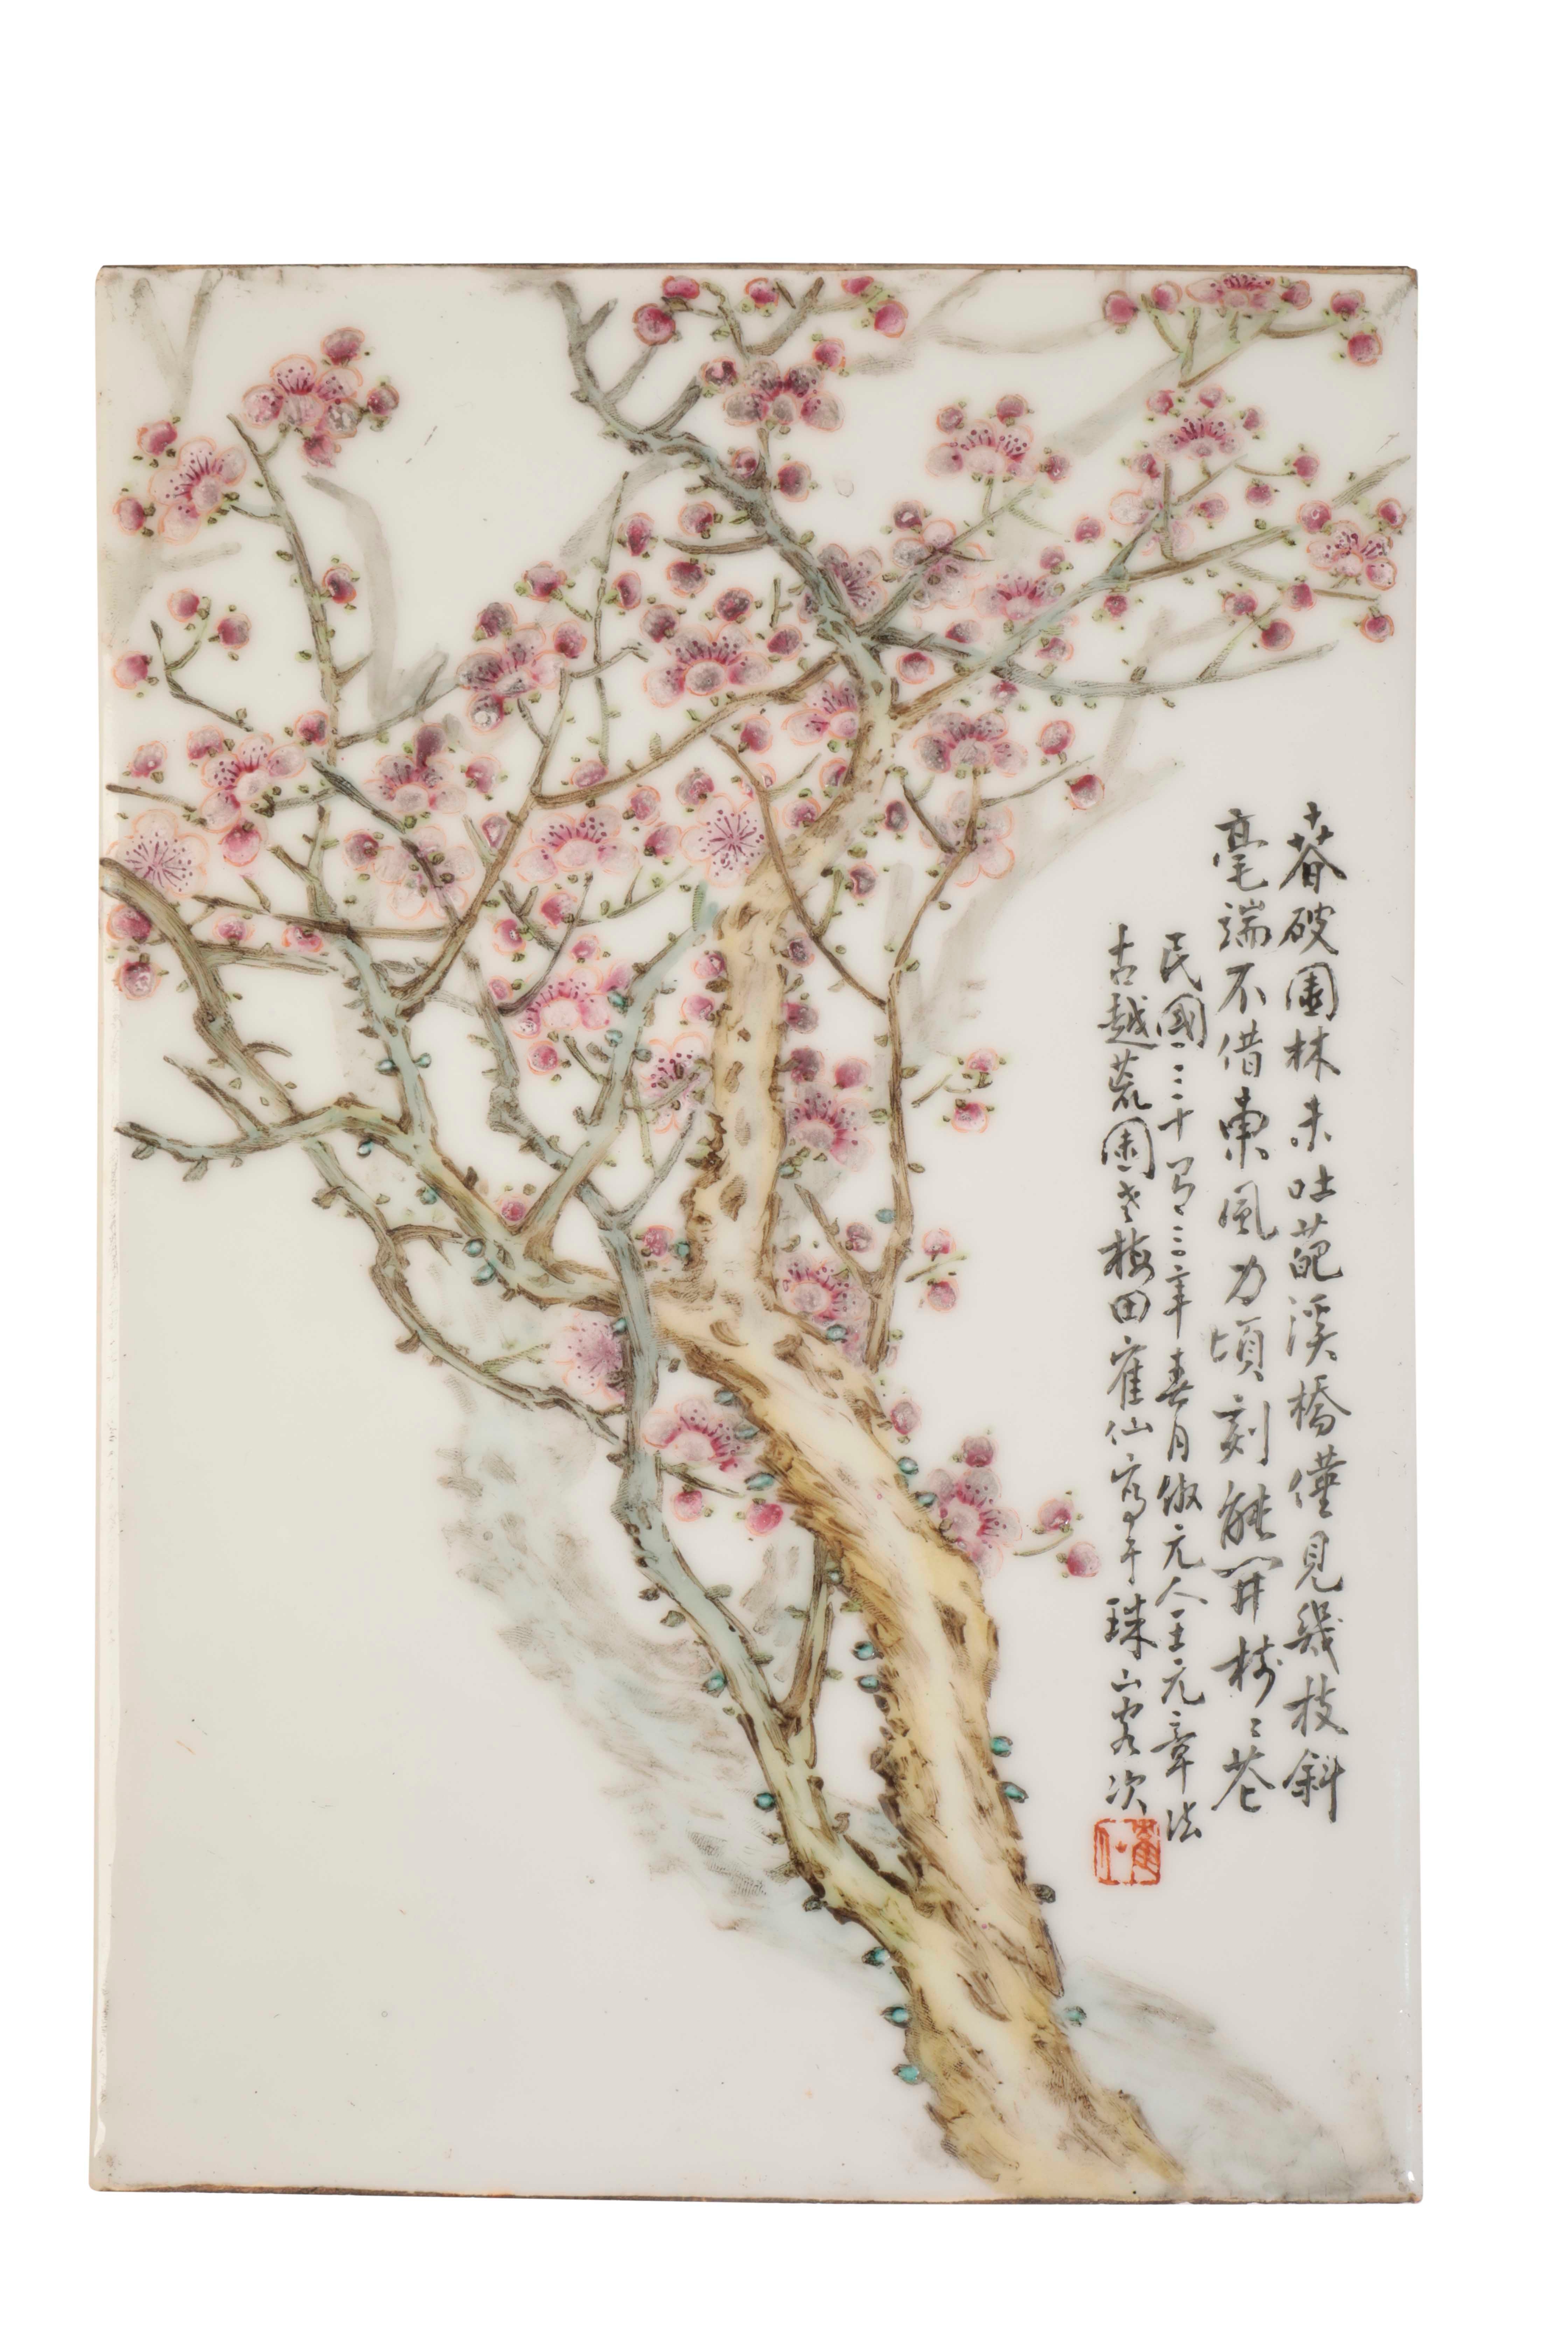 春破園林未吐葩溪橋僅見幾枝斜
毫端不借東風力頃刻能開樹〻花
民國三十有三年春月倣元人王元章法
古越荒園老梅田寉仙寫于珠山客次